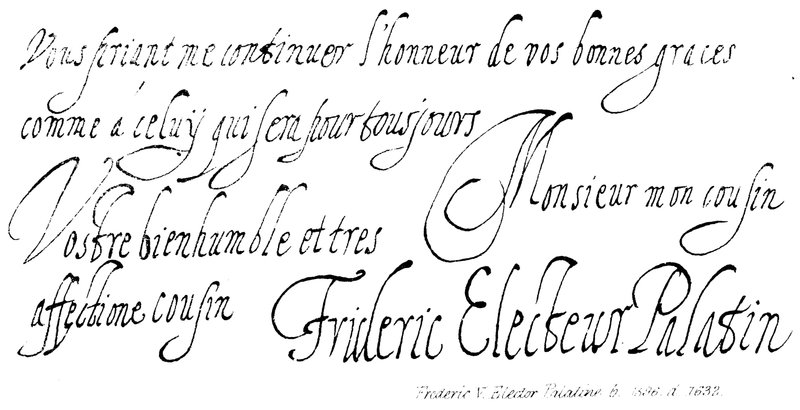 Vous priant me continuer l'honneur de vos bonnes graces
comme a celuy qui sera pour tousjours
Monsieur mon cousin
Vostre bien humble et tres
affectione cousin
Frideric Electeur Palatin
Frederic V. Elector Palatine b. 1596. d. 1632.